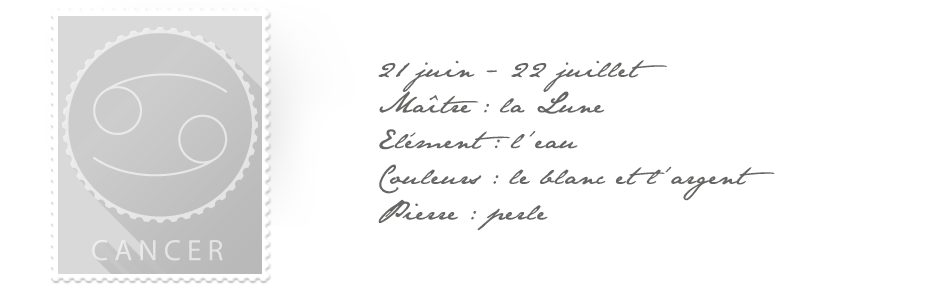 CANCER
21 juin - 22 juillet
Maître : la Lune
Elément : l'eau
Couleurs : le blanc et l'argent
Pierre : perle